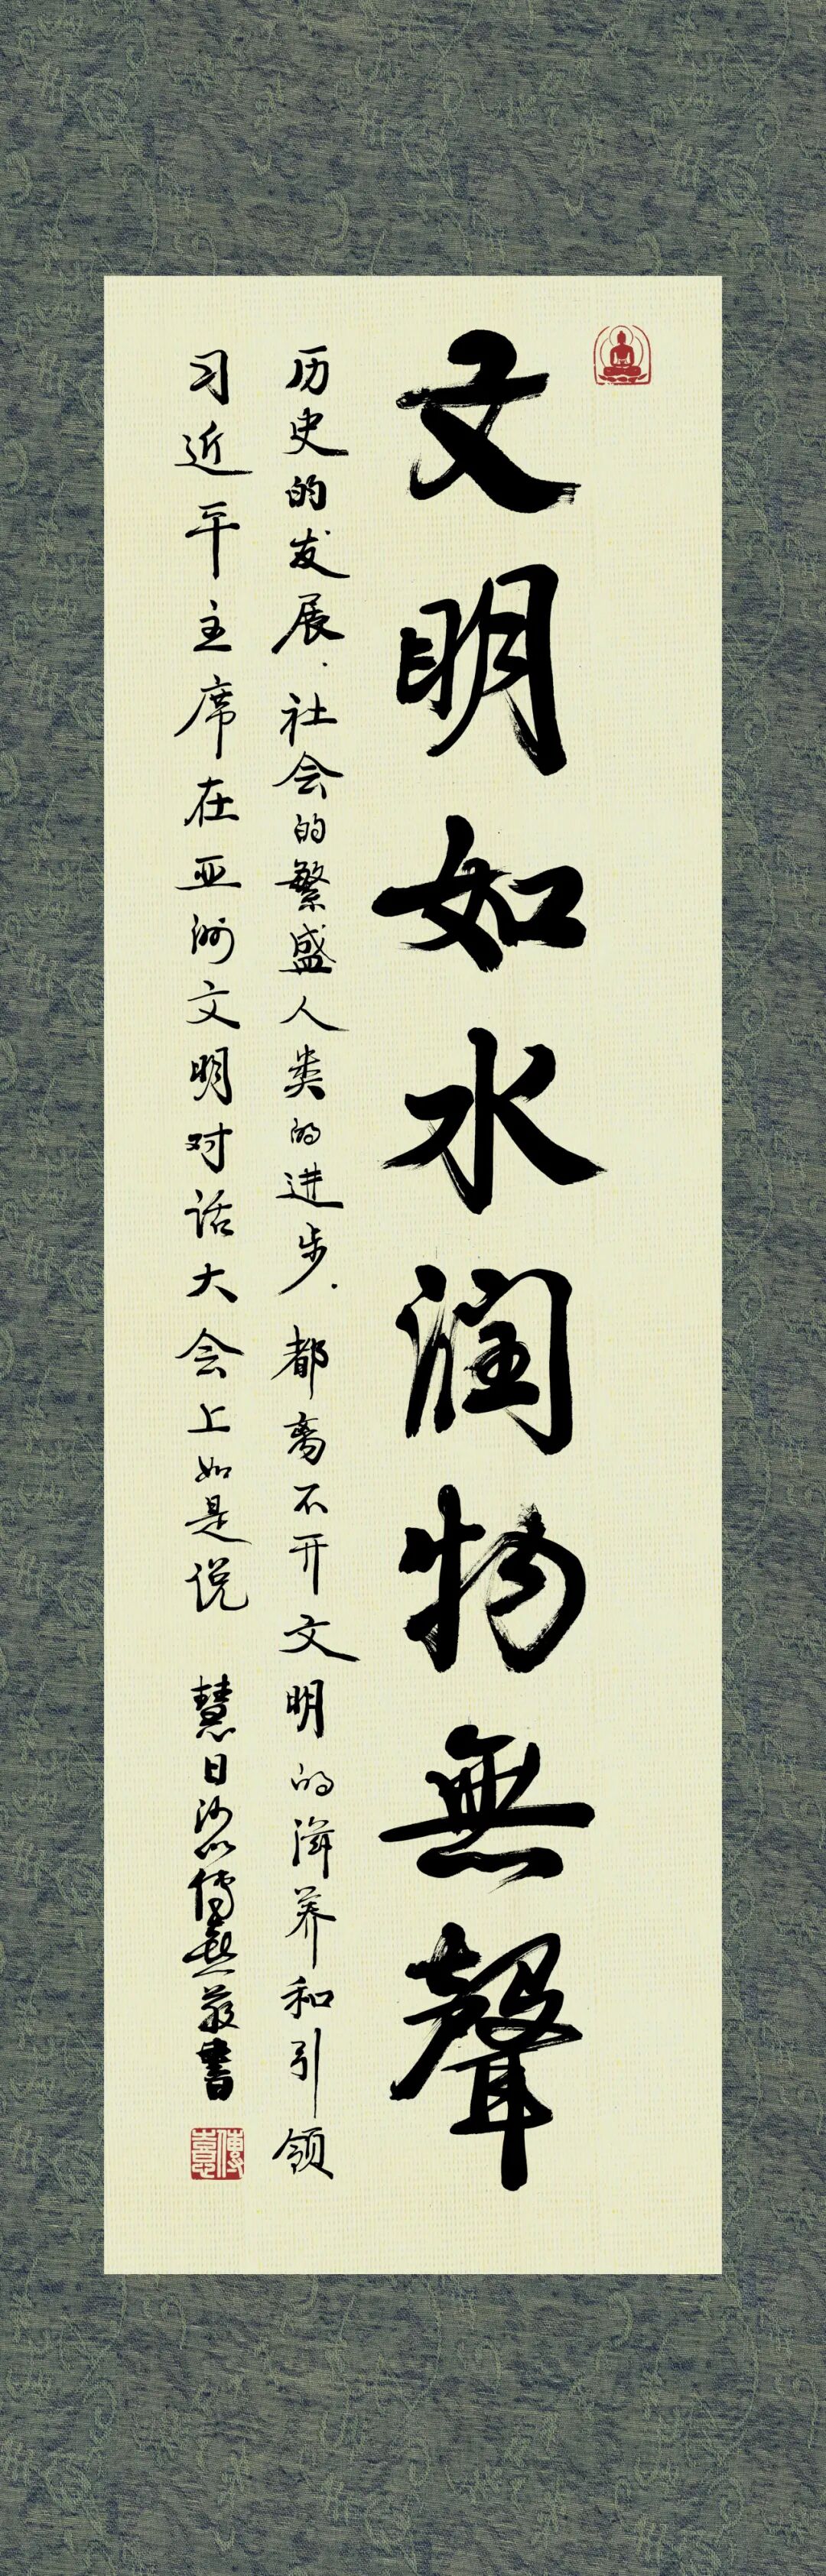 文明如水润物無聲
历史的发展、社会的繁盛、人类的进步、都离不开文明的滋养和引领
习近平主席在亚洲文明对话大会上如是说 慧日沙门传喜敬書
傳喜